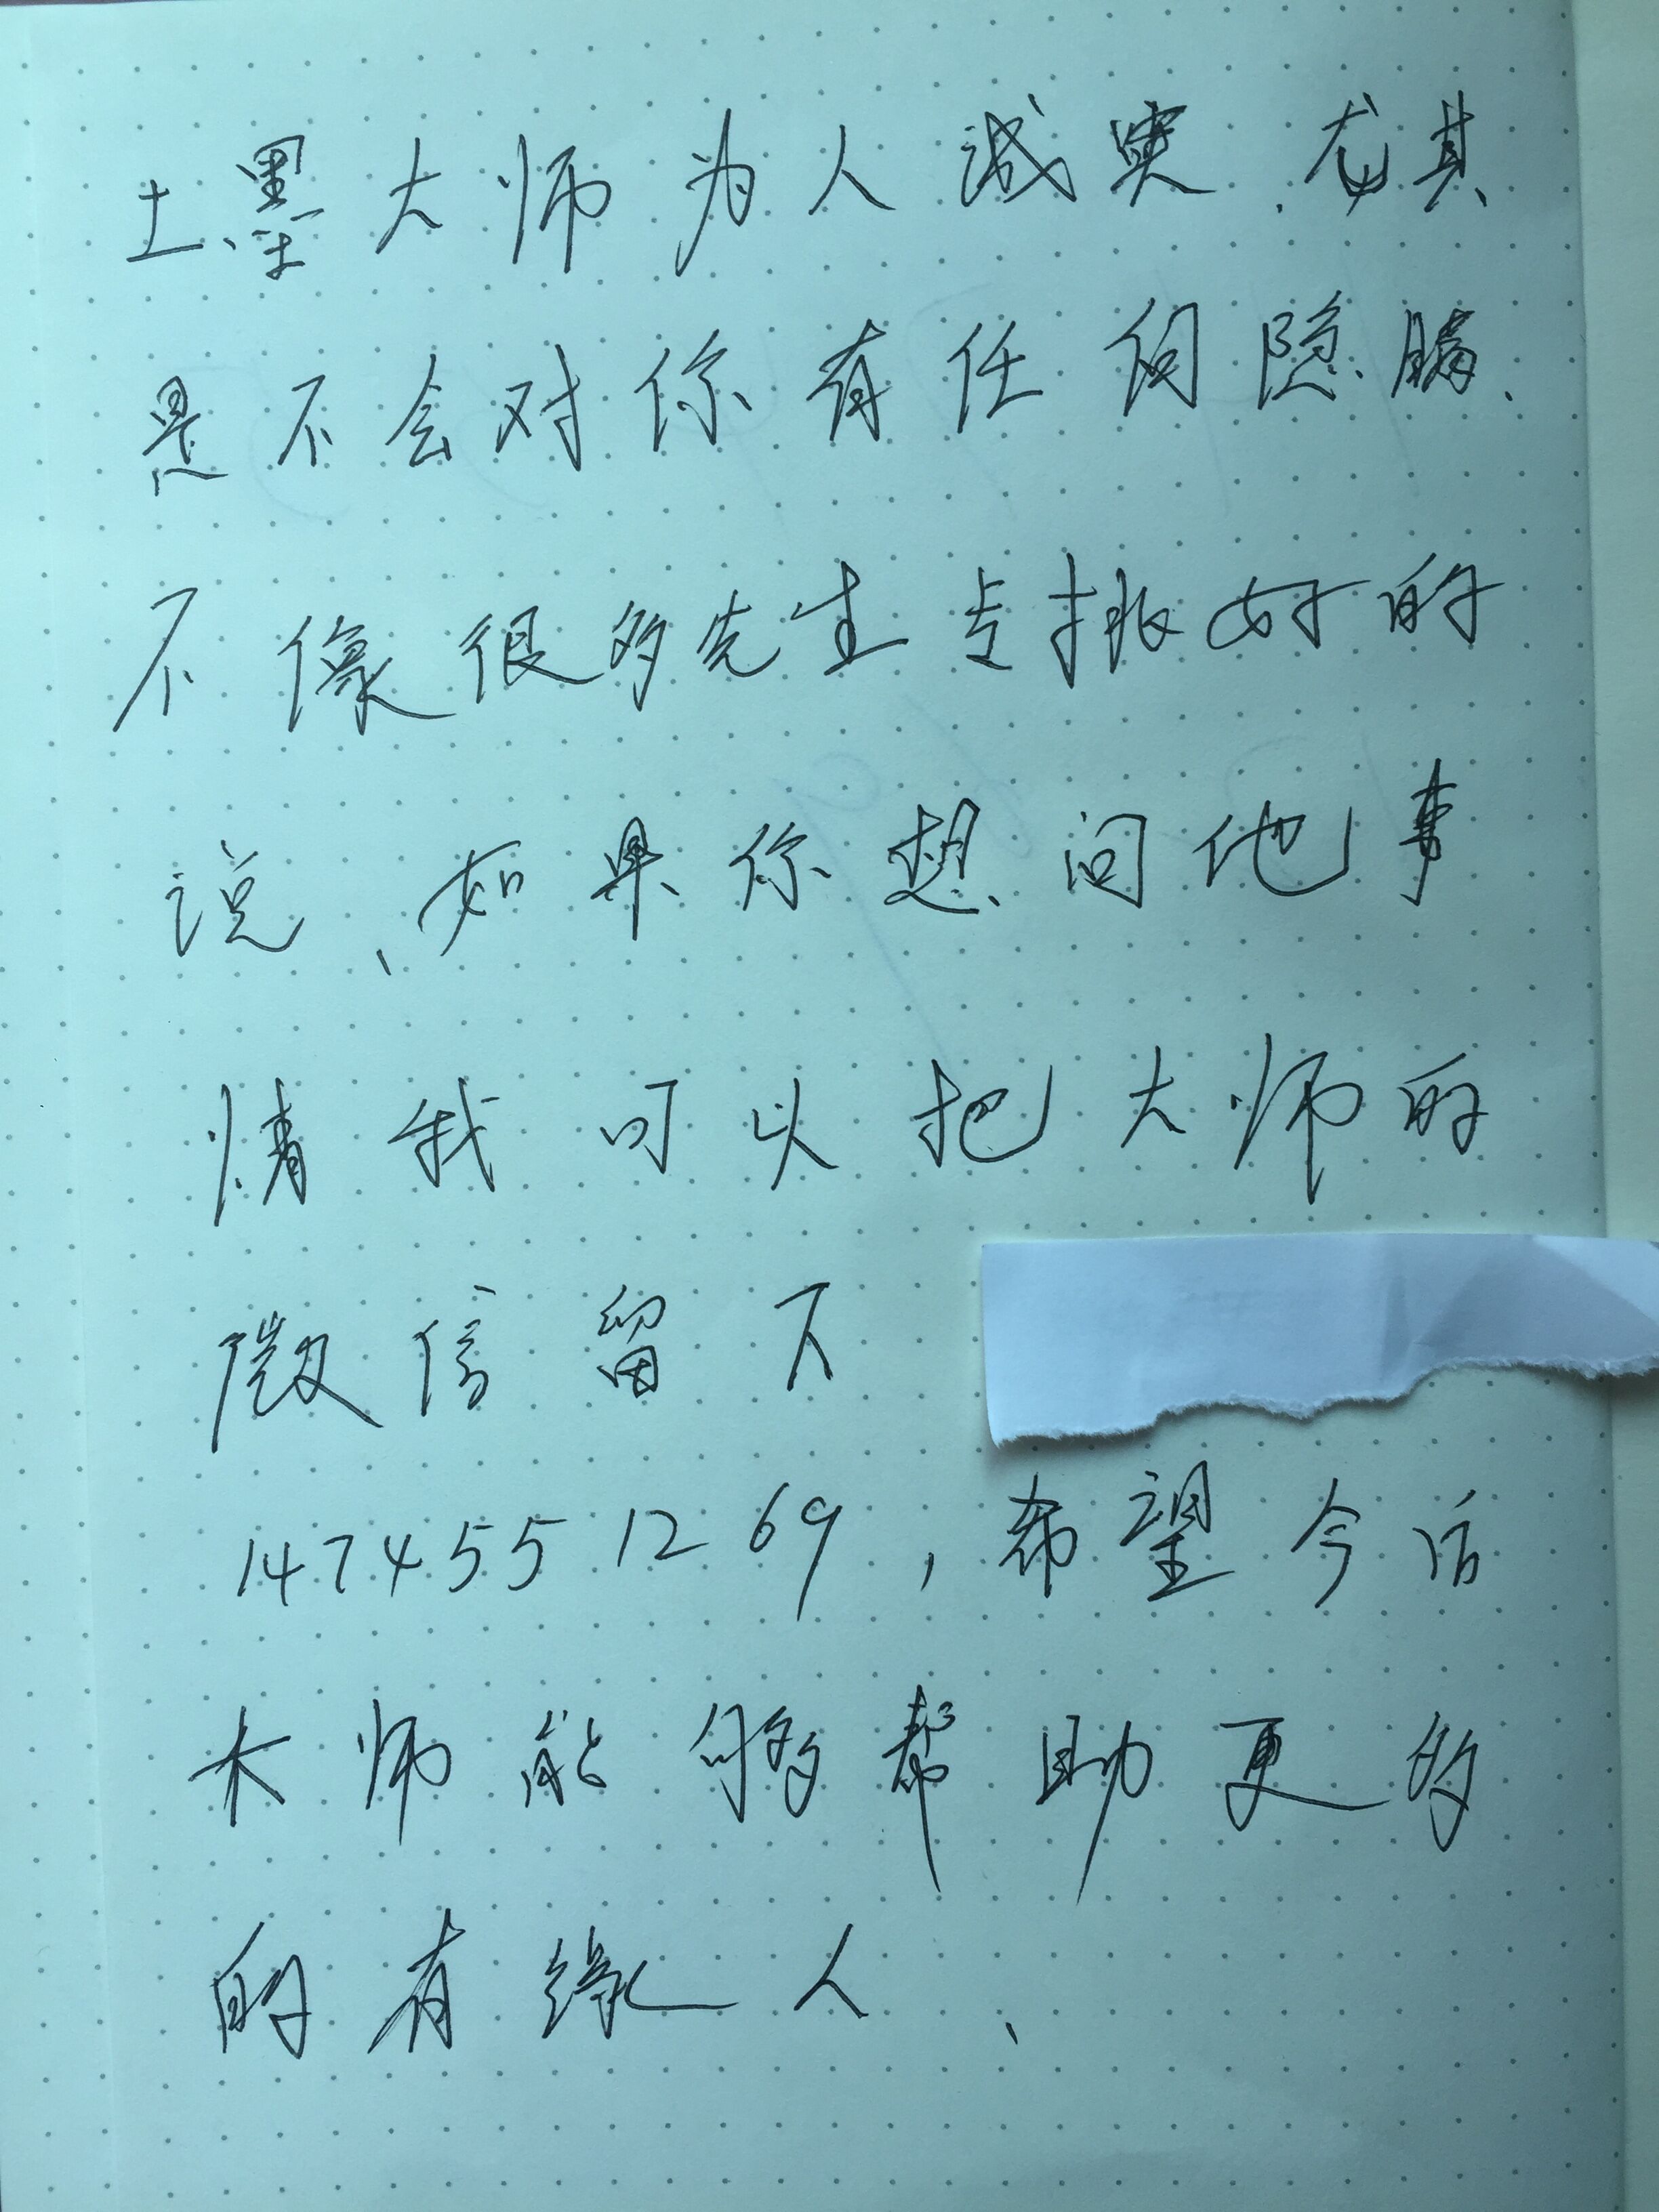 土墨大师为人诚实.尤其
是不会对你有任何隐瞒、
不像很多先生专挑好的
说、如果你想问他事
情我可以把大师的
微信留下
1474551269，希望今后
大师能够帮助更多
的有缘人、